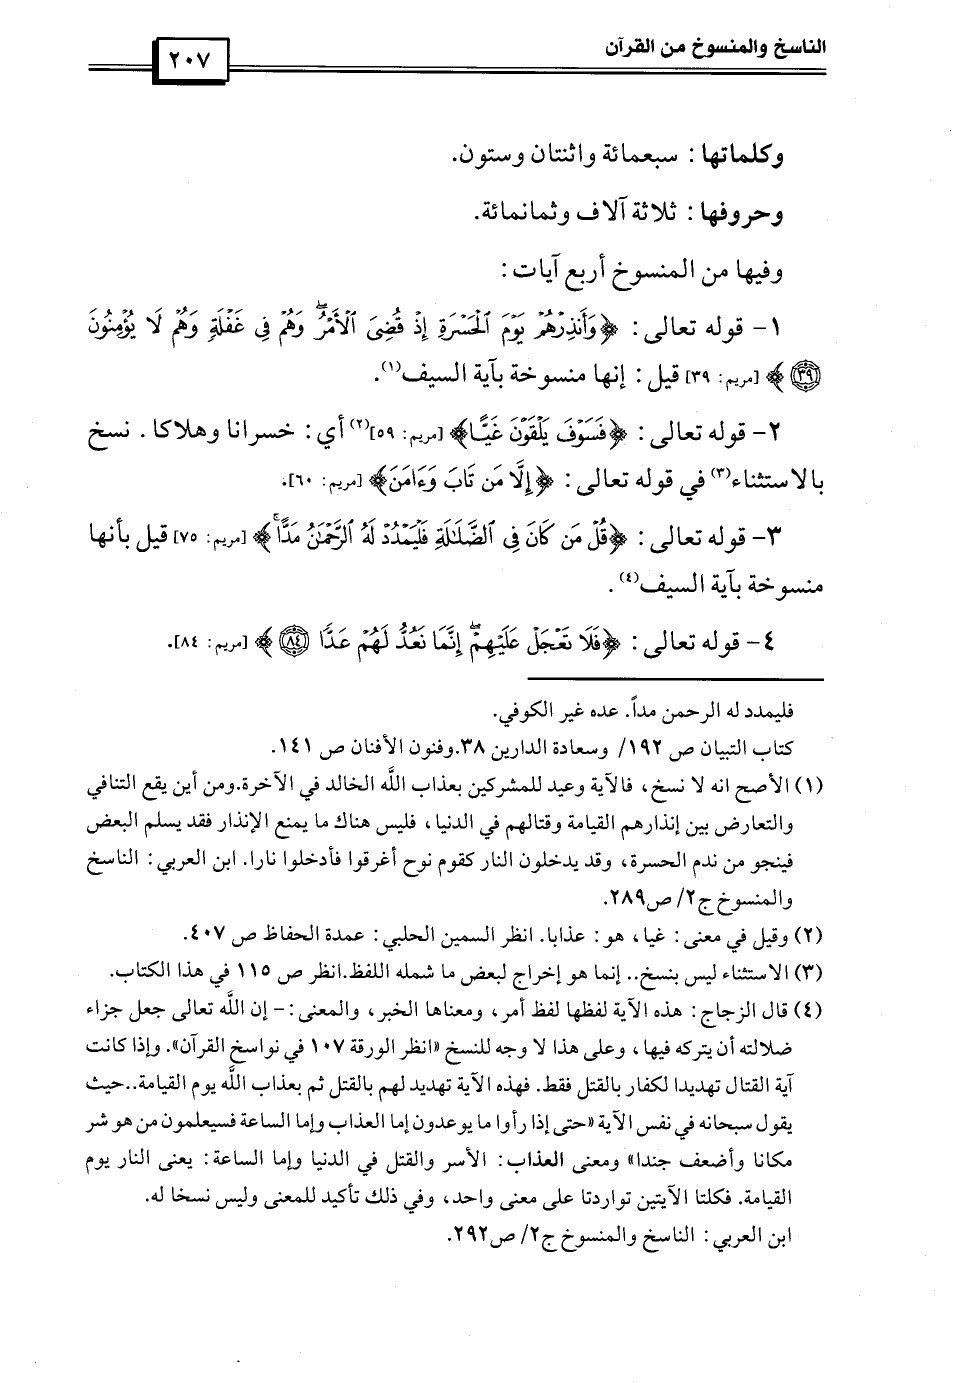 الناسخ والمنسوخ من القرآن
٢٠٧
وكلماتها : سبعمائة واثنتان وستون.
وحروفها : ثلاثة آلاف وثمانمائة.
وفيها من المنسوخ أربع آيات :
١- قوله تعالى : ﴿وَأَنذِرْهُمْ يَوْمَ ٱلْحَسْرَةِ إِذْ قُضِىَ ٱلْأَمْرُ وَهُمْ فِى غَفْلَةٍ وَهُمْ لَا يُؤْمِنُونَ
٣٩﴾ [مريم: ٣٩] قيل : إنها منسوخة بآية السيف(١).
٢- قوله تعالى : ﴿فَسَوْفَ يَلْقَوْنَ غَيًّا﴾ [مريم: ٥٩](٢) أي : خسرانا وهلاكا . نسخ
بالاستثناء(٣) في قوله تعالى : ﴿إِلَّا مَن تَابَ وَءَامَنَ﴾ [مريم: ٦٠].
٣- قوله تعالى : ﴿قُلْ مَن كَانَ فِى ٱلضَّلَٰلَةِ فَلْيَمْدُدْ لَهُ ٱلرَّحْمَٰنُ مَدًّا ۚ﴾ [مريم: ٧٥] قيل بأنها
منسوخة بآية السيف(٤) .
٤- قوله تعالى : ﴿فَلَا تَعْجَلْ عَلَيْهِمْ ۖ إِنَّمَا نَعُدُّ لَهُمْ عَدًّا ٨٤﴾ [مريم: ٨٤].
فليمدد له الرحمن مداً. عده غير الكوفي.
كتاب التبيان ص ١٩٢/ وسعادة الدارين ٣٨.وفنون الأفنان ص ١٤١.
(١) الأصح انه لا نسخ، فالآية وعيد للمشركين بعذاب الله الخالد في الآخرة.ومن أين يقع التنافي
والتعارض بين إنذارهم القيامة وقتالهم في الدنيا، فليس هناك ما يمنع الإنذار فقد يسلم البعض
فينجو من ندم الحسرة، وقد يدخلون النار كقوم نوح أغرقوا فأدخلوا نارا. ابن العربي: الناسخ
والمنسوخ ج٢/ ص٢٨٩.
(٢) وقيل في معنى: غيا، هو: عذابا. انظر السمين الحلبي: عمدة الحفاظ ص ٤٠٧.
(٣) الاستثناء ليس بنسخ.. إنما هو إخراج لبعض ما شمله اللفظ.انظر ص ١١٥ في هذا الكتاب.
(٤) قال الزجاج: هذه الآية لفظها لفظ أمر، ومعناها الخبر، والمعنى:- إن الله تعالى جعل جزاء
ضلالته أن يتركه فيها، وعلى هذا لا وجه للنسخ «انظر الورقة ١٠٧ في نواسخ القرآن». وإذا كانت
آية القتال تهديدا لكفار بالقتل فقط. فهذه الآية تهديد لهم بالقتل ثم بعذاب الله يوم القيامة..حيث
يقول سبحانه في نفس الآية «حتى إذا رأوا ما يوعدون إما العذاب وإما الساعة فسيعلمون من هو شر
مكانا وأضعف جندا» ومعنى العذاب: الأسر والقتل في الدنيا وإما الساعة: يعنى النار يوم
القيامة. فكلتا الآيتين تواردتا على معنى واحد، وفي ذلك تأكيد للمعنى وليس نسخا له.
ابن العربي: الناسخ والمنسوخ ج٢/ ص٢٩٢.